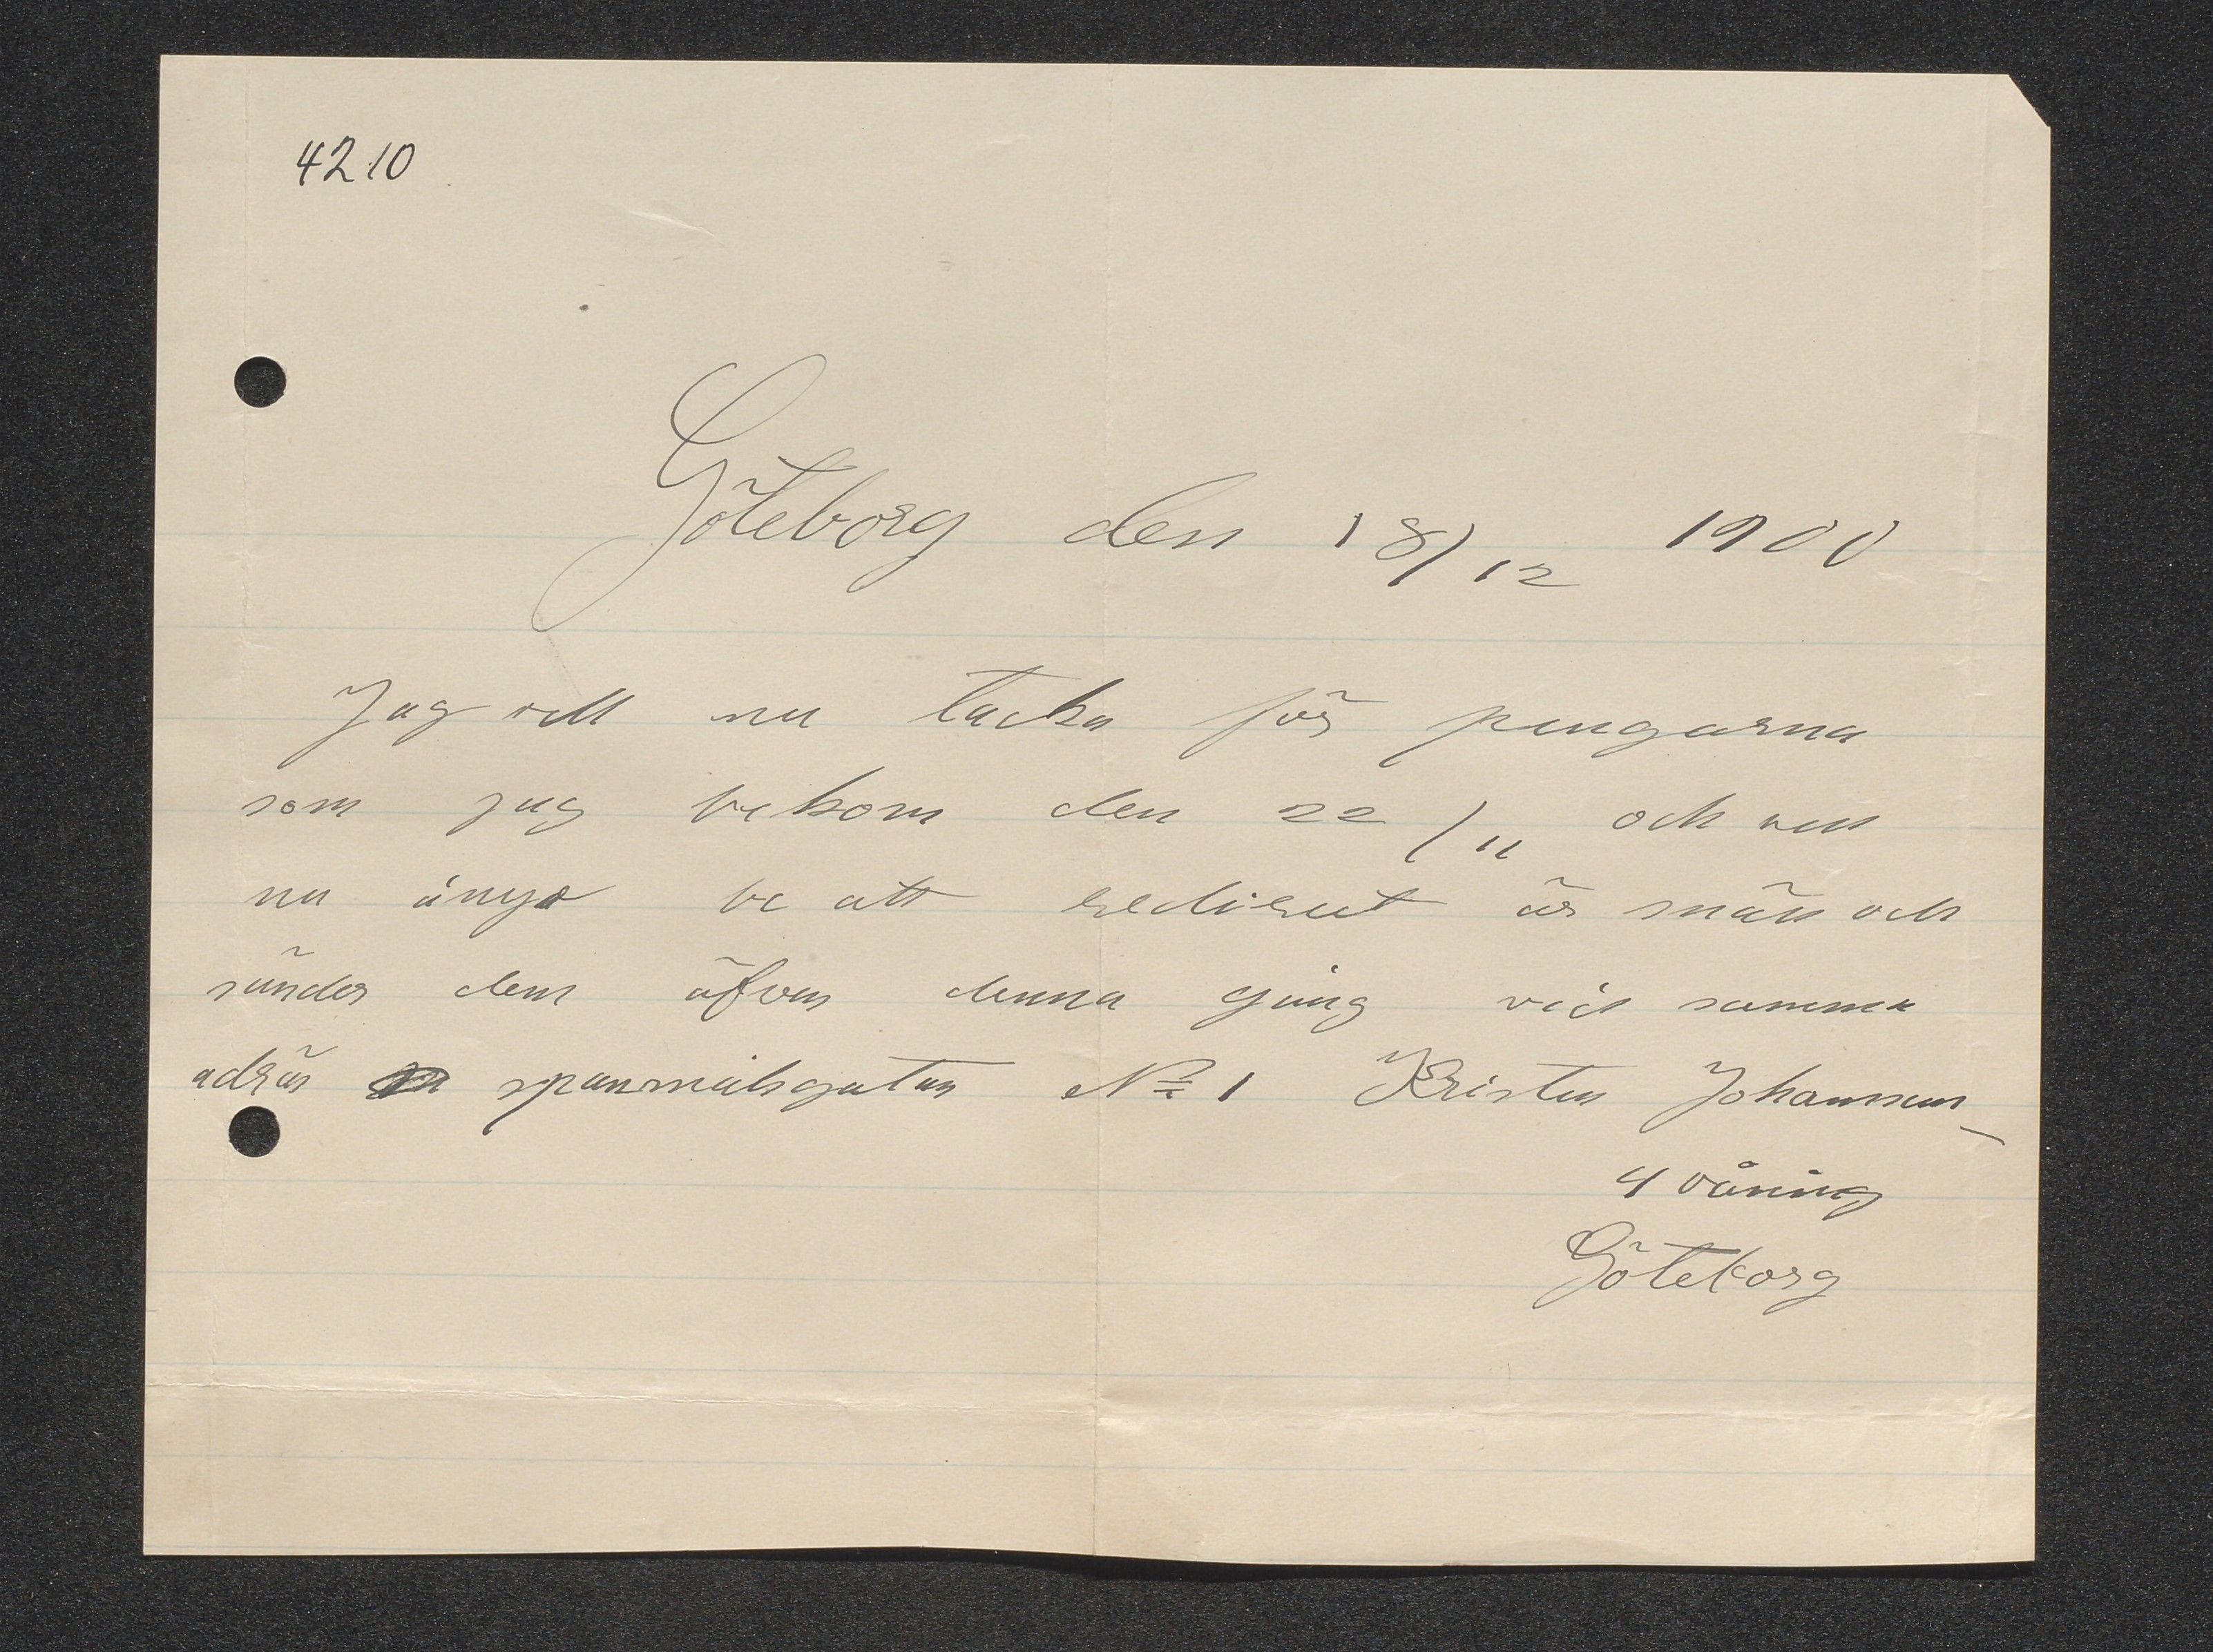 4210
Göteborg den 18/12 1900
Jag vill nu tacka för pengarna
som jag bekom den 22/11 och vill
nu ånyo be att redi är snäll och
sänder dem äfven denna gång vid samma
adräs spanmålsgatan No 1 Kristen Johansson
4 våning
Göteborg